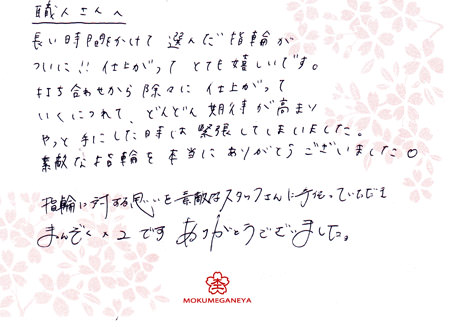 職人さんへ
長い時間をかけて選んだ指輪が
ついに!!仕上がってとても嬉しいです。
打ち合わせから除々に仕上がって
いくにつれて、どんどん期待が高まり
やっと手にした時は緊張してしまいました。
素敵な指輪を本当にありがとうございました。
指輪に対する思いを素敵なスタッフさんに手伝っていただき
まんぞく×2です ありがとうございました。
MOKUMEGANEYA